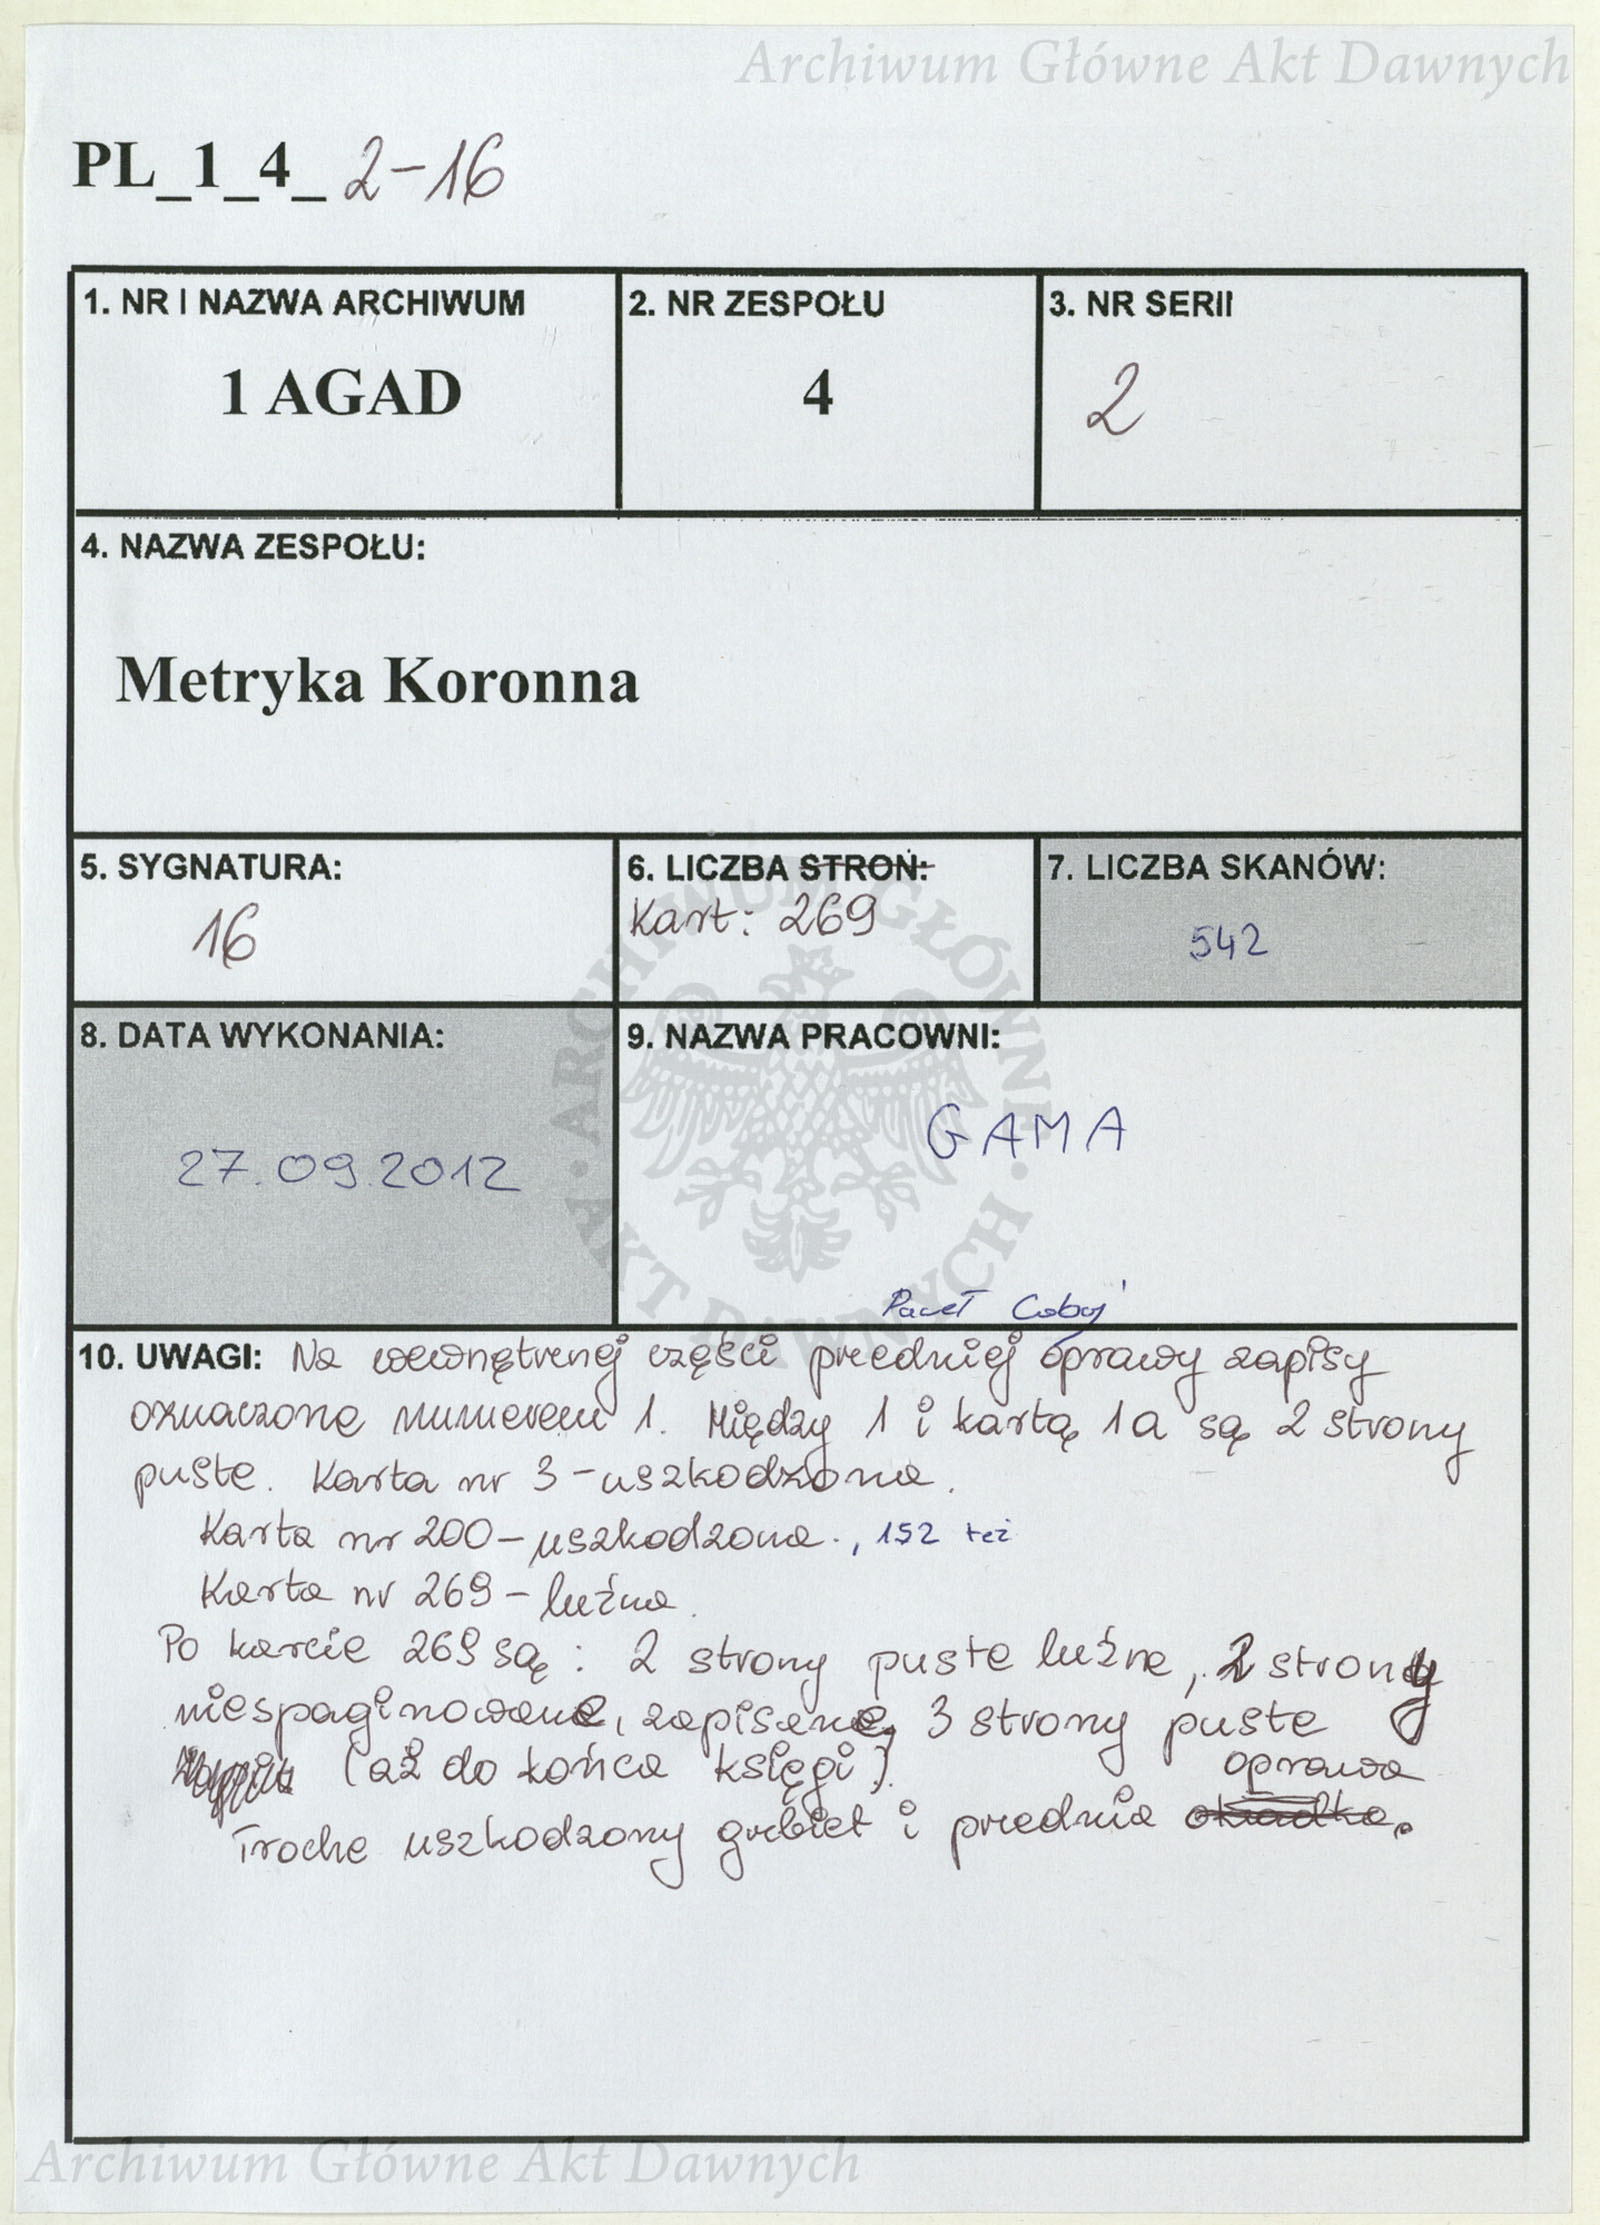 Archiwum Główne Akt Dawnych
PL_1_4_ 2-16
1. NR I NAZWA ARCHIWUM
1 AGAD
2. NR ZESPOŁU
4
3. NR SERII
2
4. NAZWA ZESPOŁU:
Metryka Koronna
5. SYGNATURA:
16
6. LICZBA STRON:
Kart: 269
7. LICZBA SKANÓW:
542
8. DATA WYKONANIA:
27.09.2012
9. NAZWA PRACOWNI:
GAMA
Paweł
ARCHIWUM GŁÓWNE · AKT DAWNYCH ·
10. UWAGI: Na wewnętrznej części przedniej oprawy zapisy
oznaczone numerem 1. Między 1 i kartą 1a są 2 strony
puste. Karta nr 3 - uszkodzona.
Karta nr 200 - uszkodzona., 152 też
Karta nr 269 - luźna.
Po karcie 269 są: 2 strony puste luźne, 2 strony
niespaginowane, zapisane, 3 strony puste
(aż do końca księgi).
oprawa
Trochę uszkodzony grzbiet i przednia okładka.
Archiwum Główne Akt Dawnych